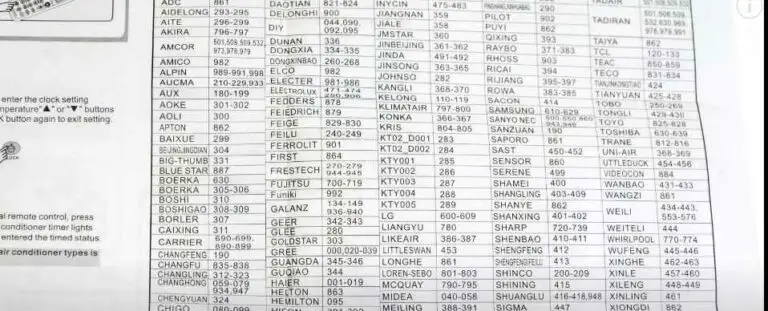 ADC 861
AIDELONG 293-295
AITE 296-299
AKIRA 796-797
AMCOR 501,508,509,532, 973,978,979
AMICO 982
ALPIN 989-991,998
AUCMA 210-229,933
AUX 180-199
AOKE 301-302
AOLI 300
APTON 862
BAIXUE 299
BEIJINGJINGDIAN 304
BIG-THUMB 331
BLUE STAR 887
BOERKA 630
BOERKA 305-306
BOSHI 310
BOSHIGAO 308-309
BORLER 307
CAIXING 311
CARRIER 690-699, 890-899
CHANGFENG 190
CHANGFU 835-838
CHANGLING 312-323
CHANGHONG 059-079 934,947
CHENGYUAN 324
CHIGO 080-099
DAOTIAN 821-824
DELONGHI 900
DIY 044,090, 092,095
DUNAN 336
DONGXIA 334-335
DONGXINBAO 260-268
ELCO 982
ELECTER 981-986
ELECTROLUX 471-474
FEDDERS 878
FEIEDRICH 879
FEIGE 829-830
FEILU 240-249
FERROLIT 901
FIRST 864
FRESTECH 270-279 944-945
FUJITSU 700-719
Funiki 992
GALANZ 134-149 936-940
GEER 342-343
GLEE 280
GOLDSTAR 303
GREE 000,020-039
GUANGDA 345-346
GUQIAO 344
HAIER 001-019
HELTON 863
HEMILTON 095
INYCIN 475-483
JIANGNAN 359
JIALE 358
JMSTAR 360
JINBEIJING 361-362
JINDA 491-492
JINSONG 363-365
JOHNSO 282
KANGLI 368-370
KELONG 110-119
KLIMATAIR 797-800
KONKA 366-367
KRIS 804-805
KT02_D001 283
KT02_D002 284
KTY001 285
KTY002 286
KTY003 287
KTY004 288
KTY005 289
LG 600-609
LIANGYU 780
LIKEAIR 386-387
LITTLESWAN 453
LONGHE 861
LOREN-SEBO 801-803
MCQUAY 790-795
MIDEA 040-058
MEILING 388-391
290
PILOT 902
PUYI 862
QIXING 393
RAYBO 371-383
RHOSS 903
RICAI 394
RIJIANG 395-397
ROWA 383-385
SACON 414
SAMSUNG 610-629
SANYO NEC
SANZUAN 190
SAPORO 861
SAST 450-452
SENSOR 860
SERENE 499
SHAMEI 400
SHANGLING 403-409
SHANYE 862
SHANXING 401-402
SHARP 720-739
SHENBAO 410-411
SHENGFENG 412
SHENGFENGFEILU 413
SHINCO 200-209
SHINING 415
SHUANGLU 416-418,948
SIGMA 447
TADIRAN 501,508,509, 532,630,969, 978,979,991
TAIYA 862
TCL 120-133
TEAC 850-859
TECO 831-834
TIANJINTONGTIAO 424
TIANYUAN 425-428
TOBO 250-269
TONGLI 429-430
TOYO 825-828
TOSHIBA 630-639
TRANE 812-816
UNI-AIR 368-369
UTTLEDUCK 454-456
VIDEOCON 884
WANBAO 431-433
WANGZI 861
WEILI 434-443, 553-576
WEITELI 444
WHIRLPOOL 770-774
WUFENG 445-446
XINGHE 462-463
XINLE 457-460
XILENG 448-449
XINLING 461
XIONGDI 862
enter the clock setting
mperature"▲" or "▼" buttons
K button again to exit setting.
al remote control, press
conditioner timer lights
entered the timed status.
air conditioner types is